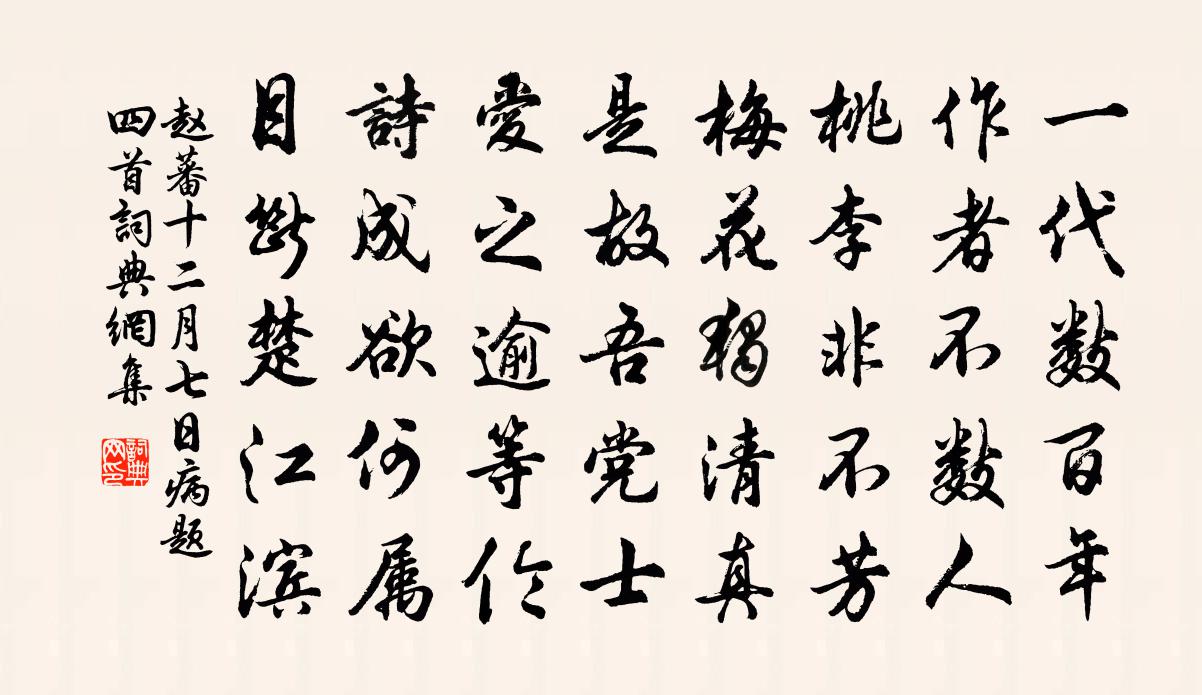 一代数百年
作者不数人
桃李非不芳
梅花独清真
是故吾党士
愛之逾等伦
詩成欲何属
目断楚江滨
赵蕃十二月七日病题
四首詞典網集
詞典網印